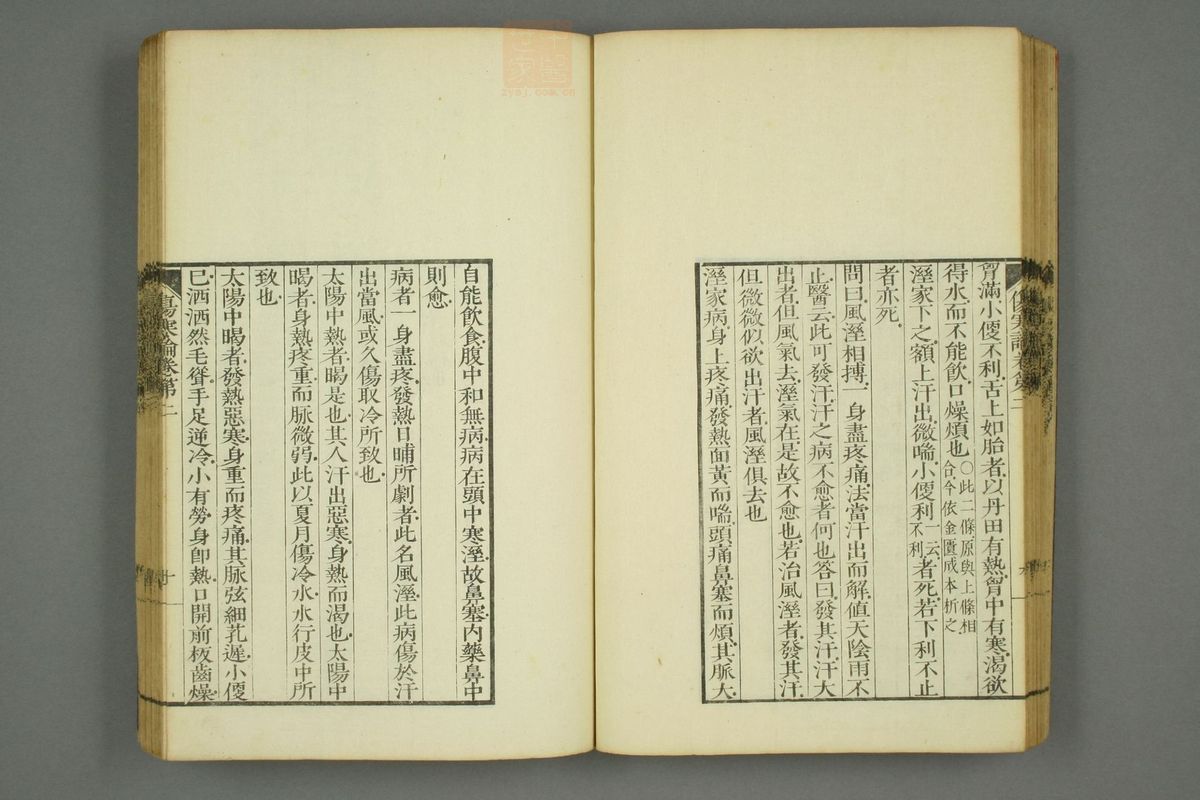 胷滿小便不利舌上如胎者以丹田有熱胷中有寒渴欲
得水而不能飲口燥煩也○此二條原與上條相合今依金匱成本析之
溼家下之額上汗出微喘小便利一云不利者死若下利不止
者亦死
問曰風溼相搏一身盡疼痛法當汗出而解値天陰雨不
止醫云此可發汗汗之病不愈者何也答曰發其汗汗大
出者但風氣去溼氣在是故不愈也若治風溼者發其汗
但微微似欲出汗者風溼俱去也
溼家病身上疼痛發熱面黃而喘頭痛鼻塞而煩其脈大
自能飲食腹中和無病病在頭中寒溼故鼻塞內藥鼻中
則愈
病者一身盡疼發熱日晡所劇者此名風溼此病傷於汗
出當風或久傷取冷所致也
太陽中熱者暍是也其人汗出惡寒身熱而渴也太陽中
暍者身熱疼重而脈微弱此以夏月傷冷水水行皮中所
致也
太陽中暍者發熱惡寒身重而疼痛其脈弦細芤遲小便
巳洒洒然毛聳手足逆冷小有勞身卽熱口開前板齒燥
傷寒論卷第二
十
zysj.com.cn